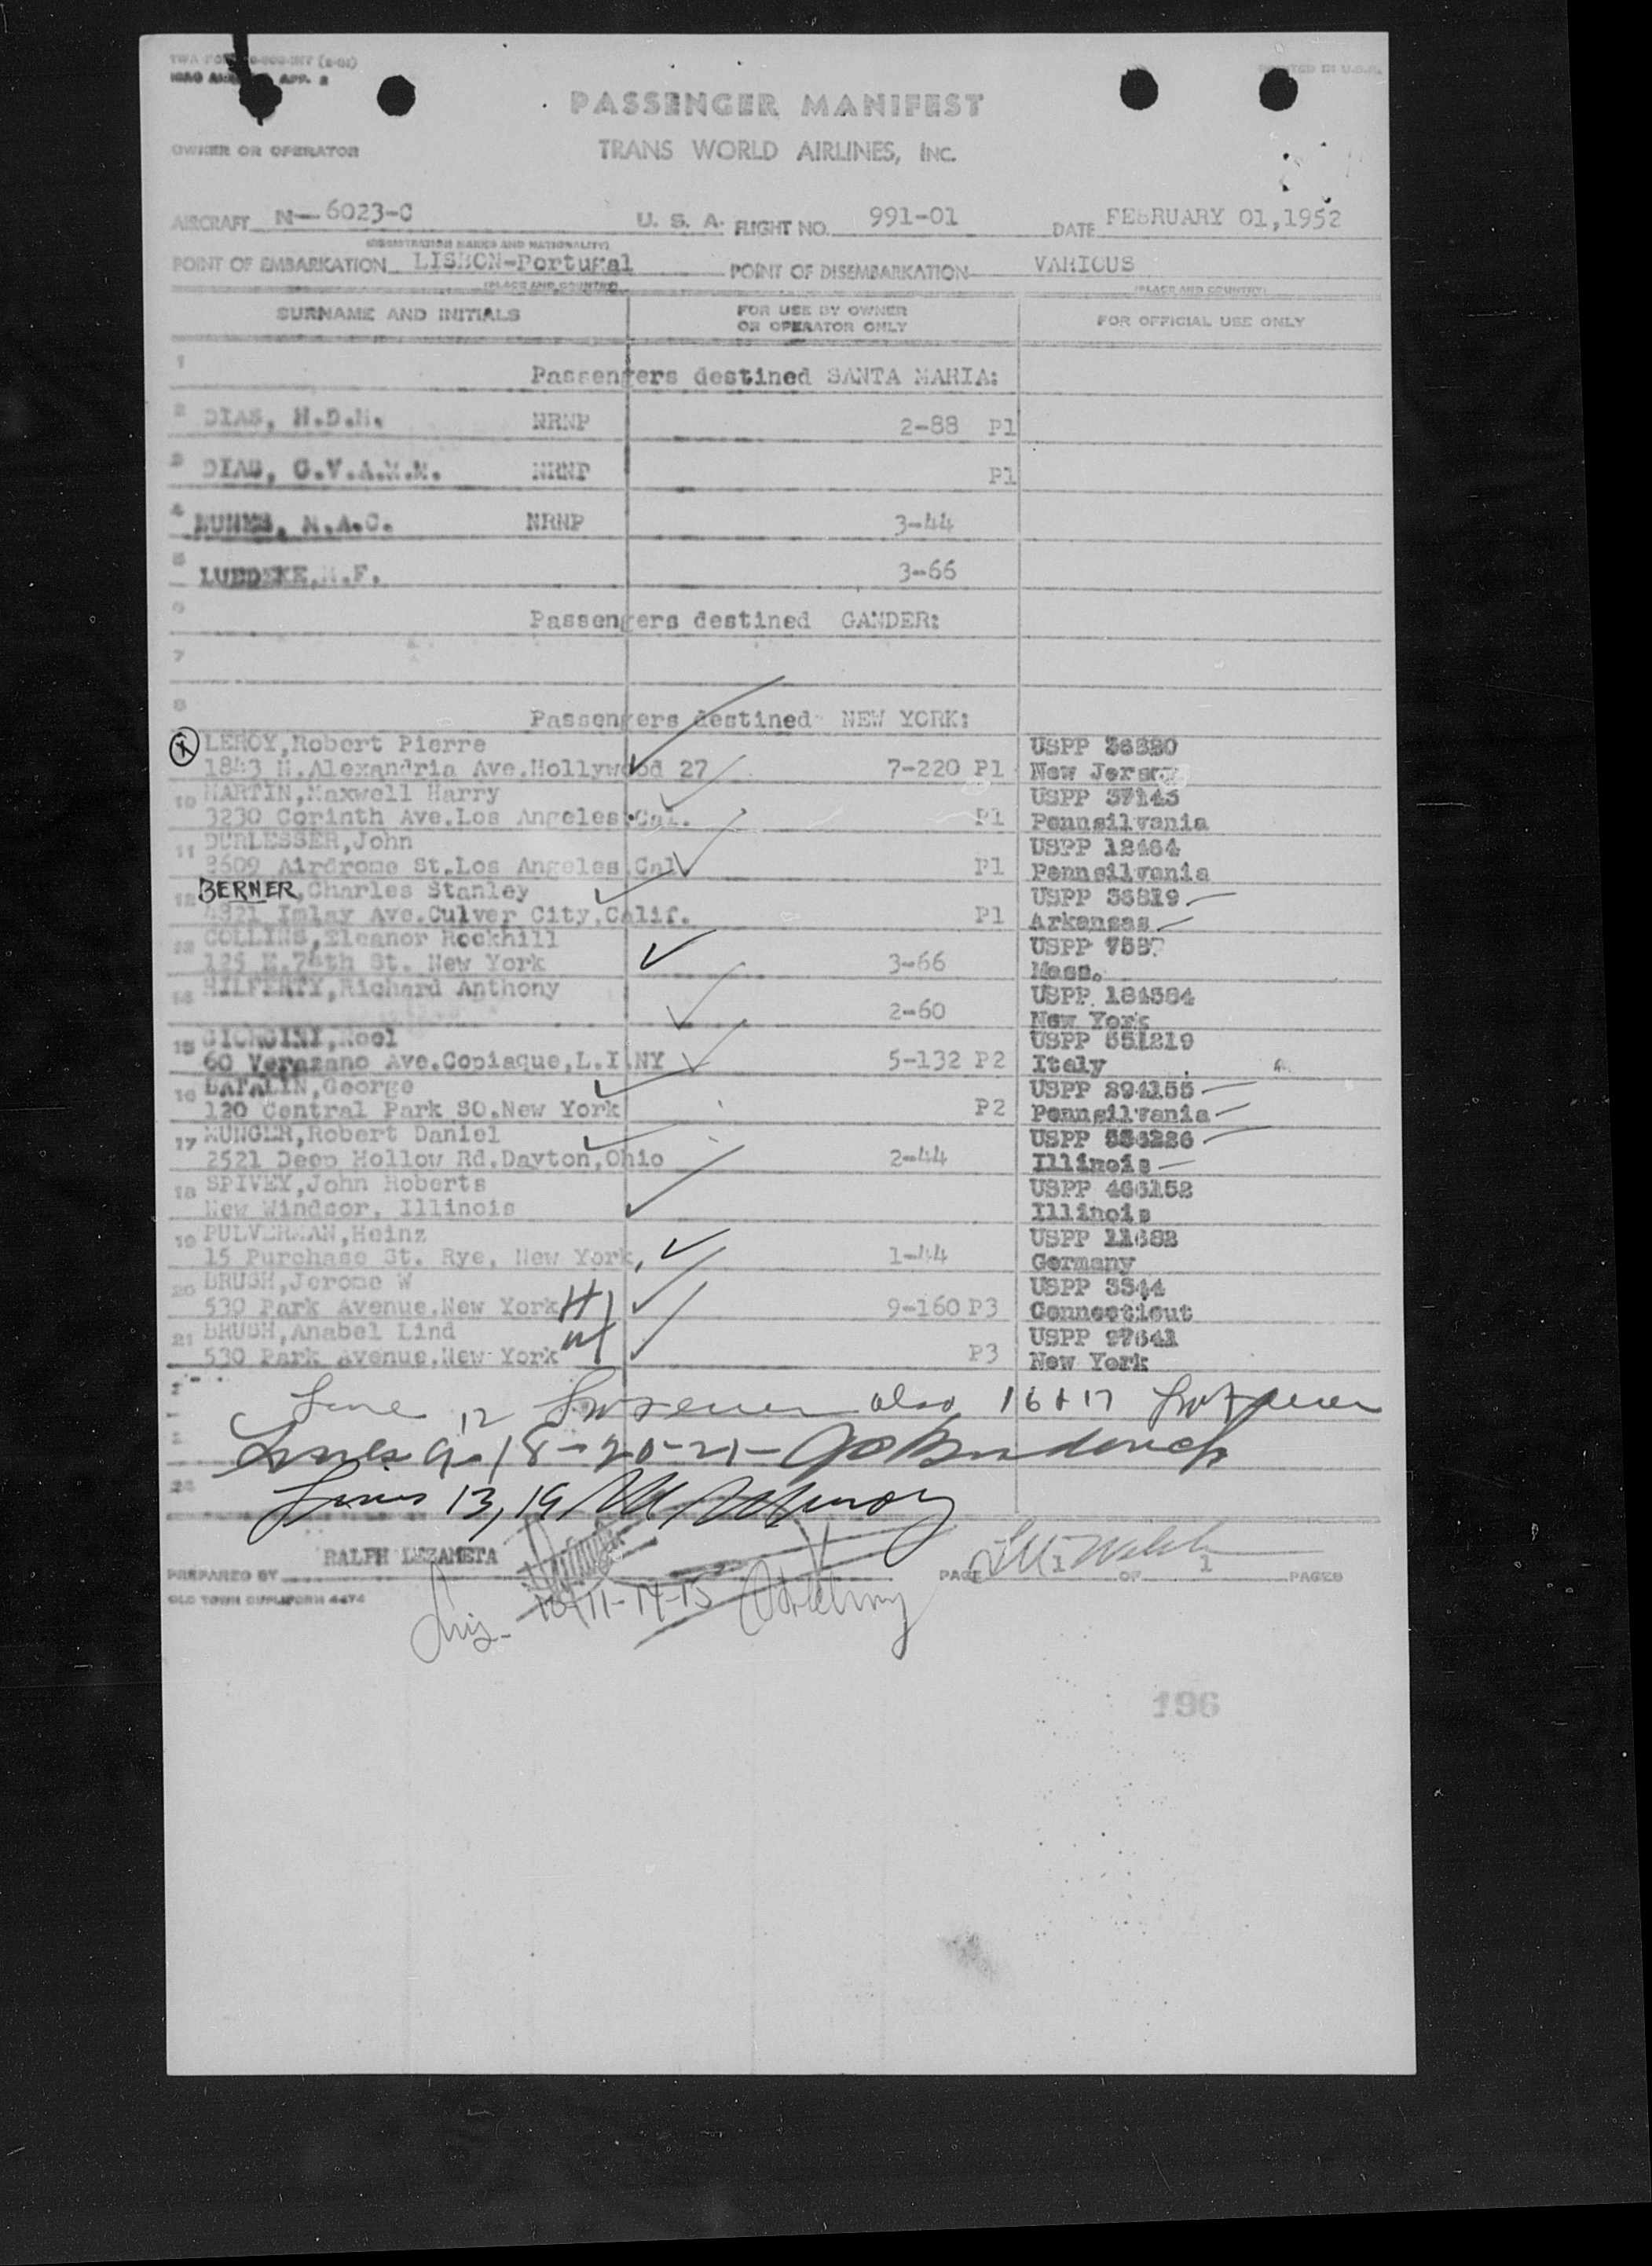 PRINTED IN U.S.A.
PASSENGER MANIFEST
OWNER OR OPERATOR TRANS WORLD AIRLINES, INC.
AIRCRAFT N-6023-C U. S. A. FLIGHT NO. 991-01 DATE FEBRUARY 01,1952
(REGISTRATION MARKS AND NATIONALITY)
POINT OF EMBARKATION LISBON-Portugal POINT OF DISEMBARKATION VARIOUS
(PLACE AND COUNTRY) (PLACE AND COUNTRY)
SURNAME AND INITIALS FOR USE BY OWNER OR OPERATOR ONLY FOR OFFICIAL USE ONLY
1 Passengers destined SANTA MARIA:
2 DIAS, H.D.H. NRNP 2-88 P1
3 DIAS, G.V.A.M.M. NRNP P1
4 NUNES, M.A.C. NRNP 3-44
5 LUEDEKE, .F. 3-66
6 Passengers destined GANDER:
7
8 Passengers destined NEW YORK:
LEROY,Robert Pierre USPP
1843 N.Alexandria Ave.Hollywood 27 7-220 P1 New Jersey
10 MARTIN,Maxwell Harry USPP 37143
3230 Corinth Ave.Los Angeles.Cal. P1 Pennsilvania
11 DURLESSER,John USPP 12464
8609 Airdrome St.Los Angeles.Cal P1 Pennsilvania
12 BERNER,Charles Stanley USPP 36819
4321 Imlay Ave.Culver City.Calif. P1 Arkansas
COLLINS,Eleanor Rockhill USPP
125 E.74th St. New York 3-66 Mass.
HILFERTY,Richard Anthony USPP 184384
2-60 New York
15 GIORGINI,Noel USPP 551219
60 Verazano Ave.Copiaque,L.I.NY 5-132 P2 Italy
16 BAFALIN,George USPP 294155
120 Central Park SO.New York P2 Pennsilvania
17 MUNGER,Robert Daniel USPP
2521 Deep Hollow Rd.Dayton,Ohio 2-44 Illinois
18 SPIVEY,John Roberts USPP 466152
New Windsor, Illinois Illinois
19 PULVERMAN,Heinz USPP 11682
15 Purchase St. Rye, New York, 1-44 Germany
20 BRUSH,Jerome W USPP 3544
530 Park Avenue.New York H 9-160 P3 Connecticut
21 BRUSH,Anabel Lind USPP 27641
530 Park Avenue.New York W P3 New York
Line 12 also 16 + 17
Lines 9-18-20-21-
Lines 13, 19
PREPARED BY RALPH LEZAMETA PAGE 1 OF 1 PAGES
OLD TOWN DUPLIFORM 4474
10-11-14-15
196